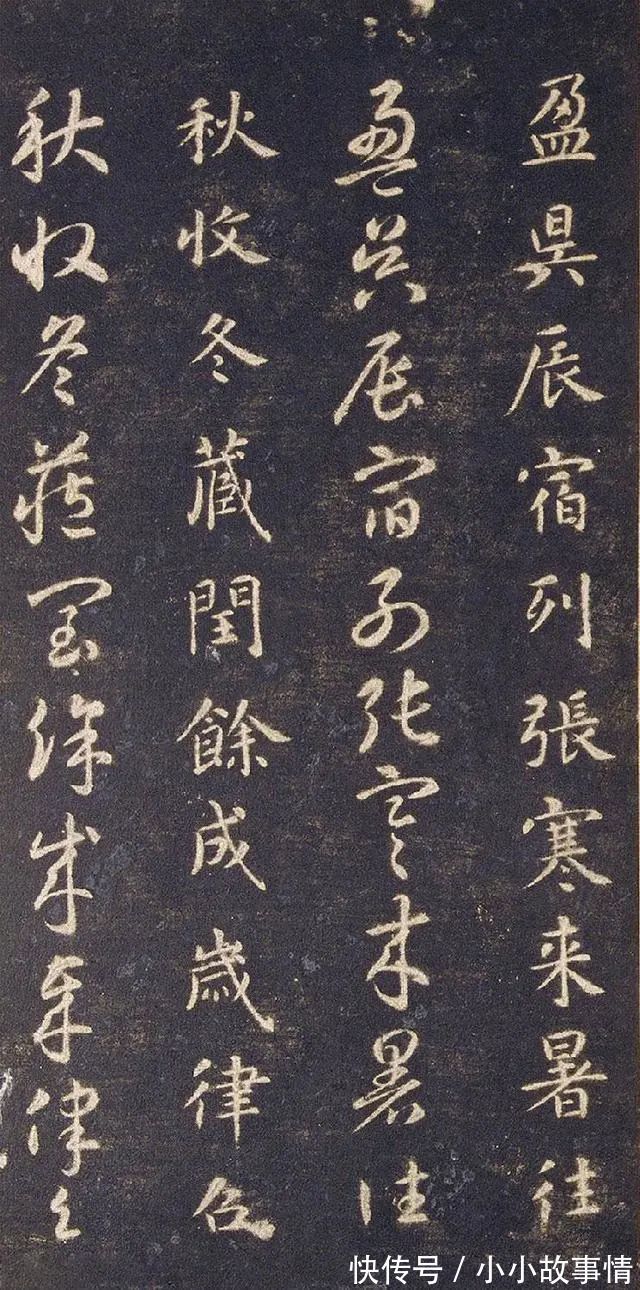 盈昃辰宿列張寒来暑往
盈昃辰宿列張寒来暑往
秋收冬藏閏餘成歲律召
秋收冬藏閏餘成歲律召
快传号 / 小小故事情